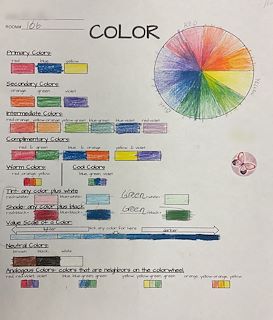 ROOM# 106
COLOR
RED
Primary Colors:
red blue yellow
Secondary Colors:
orange green violet
Intermediate Colors:
red-orange yellow-orange yellow-green blue-green blue-violet red-violet
Complimentary Colors:
red & green orange & blue yellow & violet
Warm Colors Cool Colors
red orange yellow blue green violet
Tint- any color plus white
red+white= blue+white= Green +white=
Shade- any color plus black
red+black= blue+black= Green +black=
Value Scale of a Color
lighter pick any color for here darker
Neutral Colors:
brown black white
Analogous Colors- colors that are neighbors on the colorwheel
red, red-violet, violet blue, blue-green, green yellow, yellow-green, green orange, yellow-orange, yellow